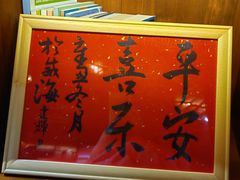 平安
喜乐
辛丑冬月
於威海